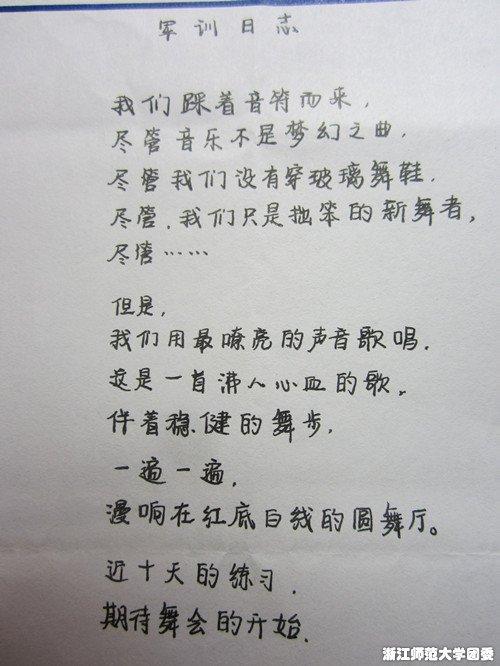 军训日志
我们踩着音符而来,
尽管音乐不是梦幻之曲,
尽管我们没有穿玻璃舞鞋.
尽管,我们只是拙笨的新舞者,
尽管……
但是,
我们用最嘹亮的声音歌唱.
这是一首沸人心血的歌,
伴着稳健的舞步,
一遍一遍,
漫响在红底白线的圆舞厅。
近十天的练习.
期待舞会的开始.
浙江师范大学团委